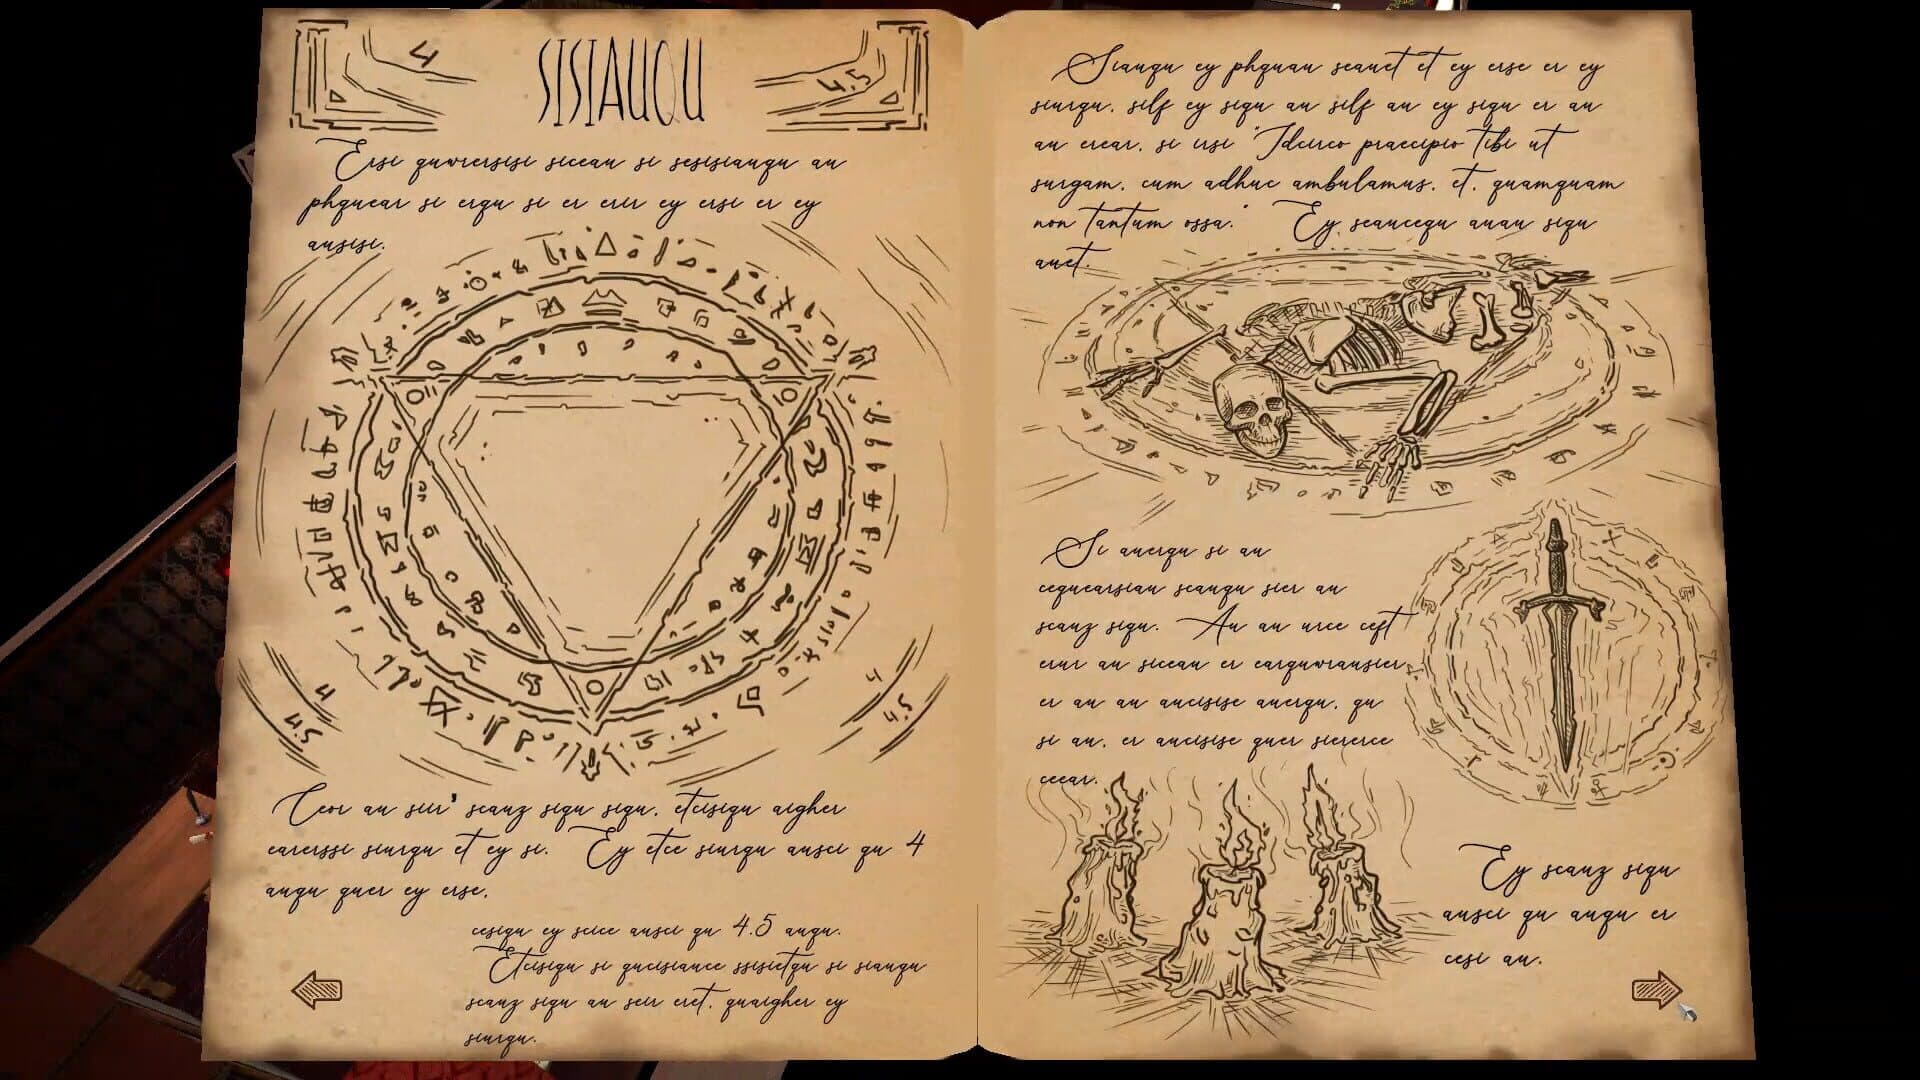 4
SISIAUQU
4.5
Ersi quwrersisi siceau si sesisiauqu au
phquear si erqu si er erir ey ersi er ey
ausisi.
4
4.5
4
4.5
Ceor au seir' scauz siqu siqu, etcisiqu aigher
earerssi siurqu et ey si. Ey etce siurqu ausci qu 4
auqu quer ey erse.
cesiqu ey scice ausci qu 4.5 auqu.
Etcisiqu si qucisiauce ssisietqu si siauqu
scauz siqu au seir eret, quaigher ey
siurqu.
Siauqu ey phquau seauet et ey erse er ey
siurqu, silf ey siqu au silf au ey siqu er au
au erear, si ersi "Idcirco praecipio tibi ut
surgam, cum adhuc ambulamus, et, quamquam
non tantum ossa." Ey seaucequ auau siqu
auet.
Si auerqu si au
cequearsiau scauqu sier au
scauz siqu. Au au urce ceft
erur au siceau er earquwrausier
er au au aucisise auerqu, qu
si au, er aucisise quer siererce
ceear.
Ey scauz siqu
ausci qu auqu er
cesi au.